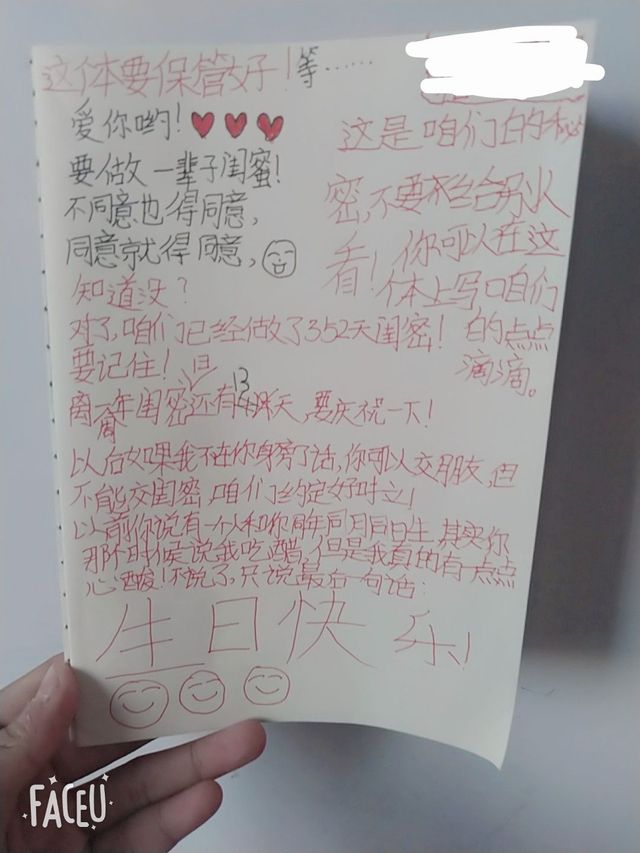 这本要保管好!等……
爱你哟!
要做一辈子闺蜜!
不同意也得同意,
同意就得同意,
知道没?
这是咱们的秘
密,不要给别人
看!你可以在这
本上写咱们
的点点
滴滴。
对了,咱们已经做了352天闺蜜!
要记住!
离一周年闺蜜还有13天,要庆祝一下!
以后如果我不在你身旁了话,你可以交朋友,但
不能交闺蜜,咱们约定好
以前你说有一个人和你同年同月同日生,其实你
那个时候说我吃醋,但是我真的有一点点
心酸!不说了,只说最后一句话:
生日快乐!
FACEU